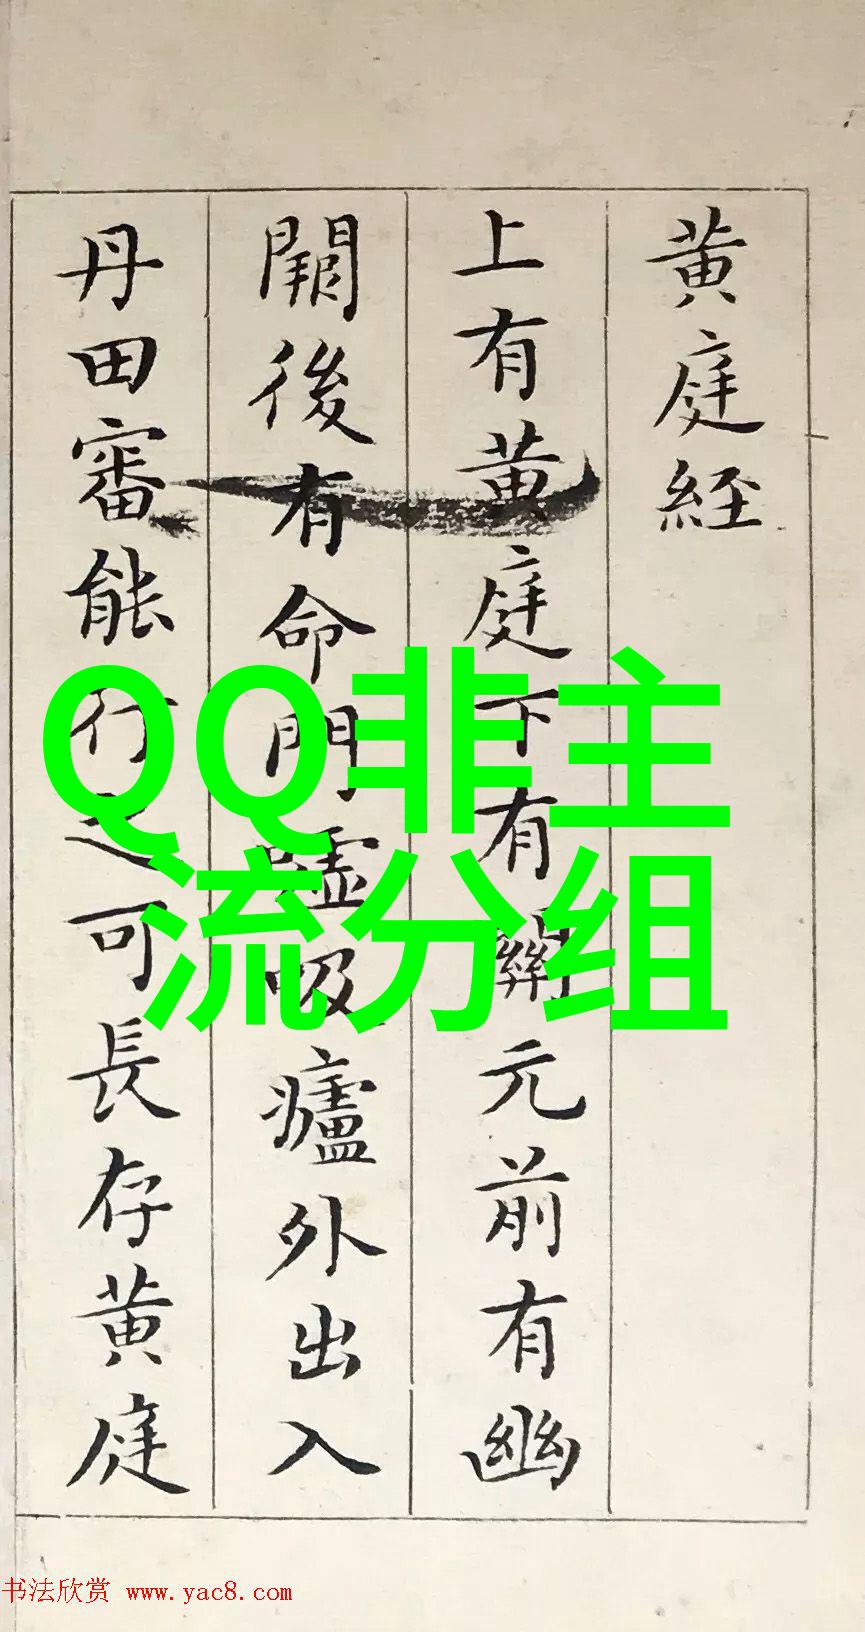 黄庭經
上有黄庭下有關元前有幽
闕後有命門嘘吸廬外出入
丹田審能行之可長存黄庭
QQ非主
流分组
书法欣赏 www.yac8.com